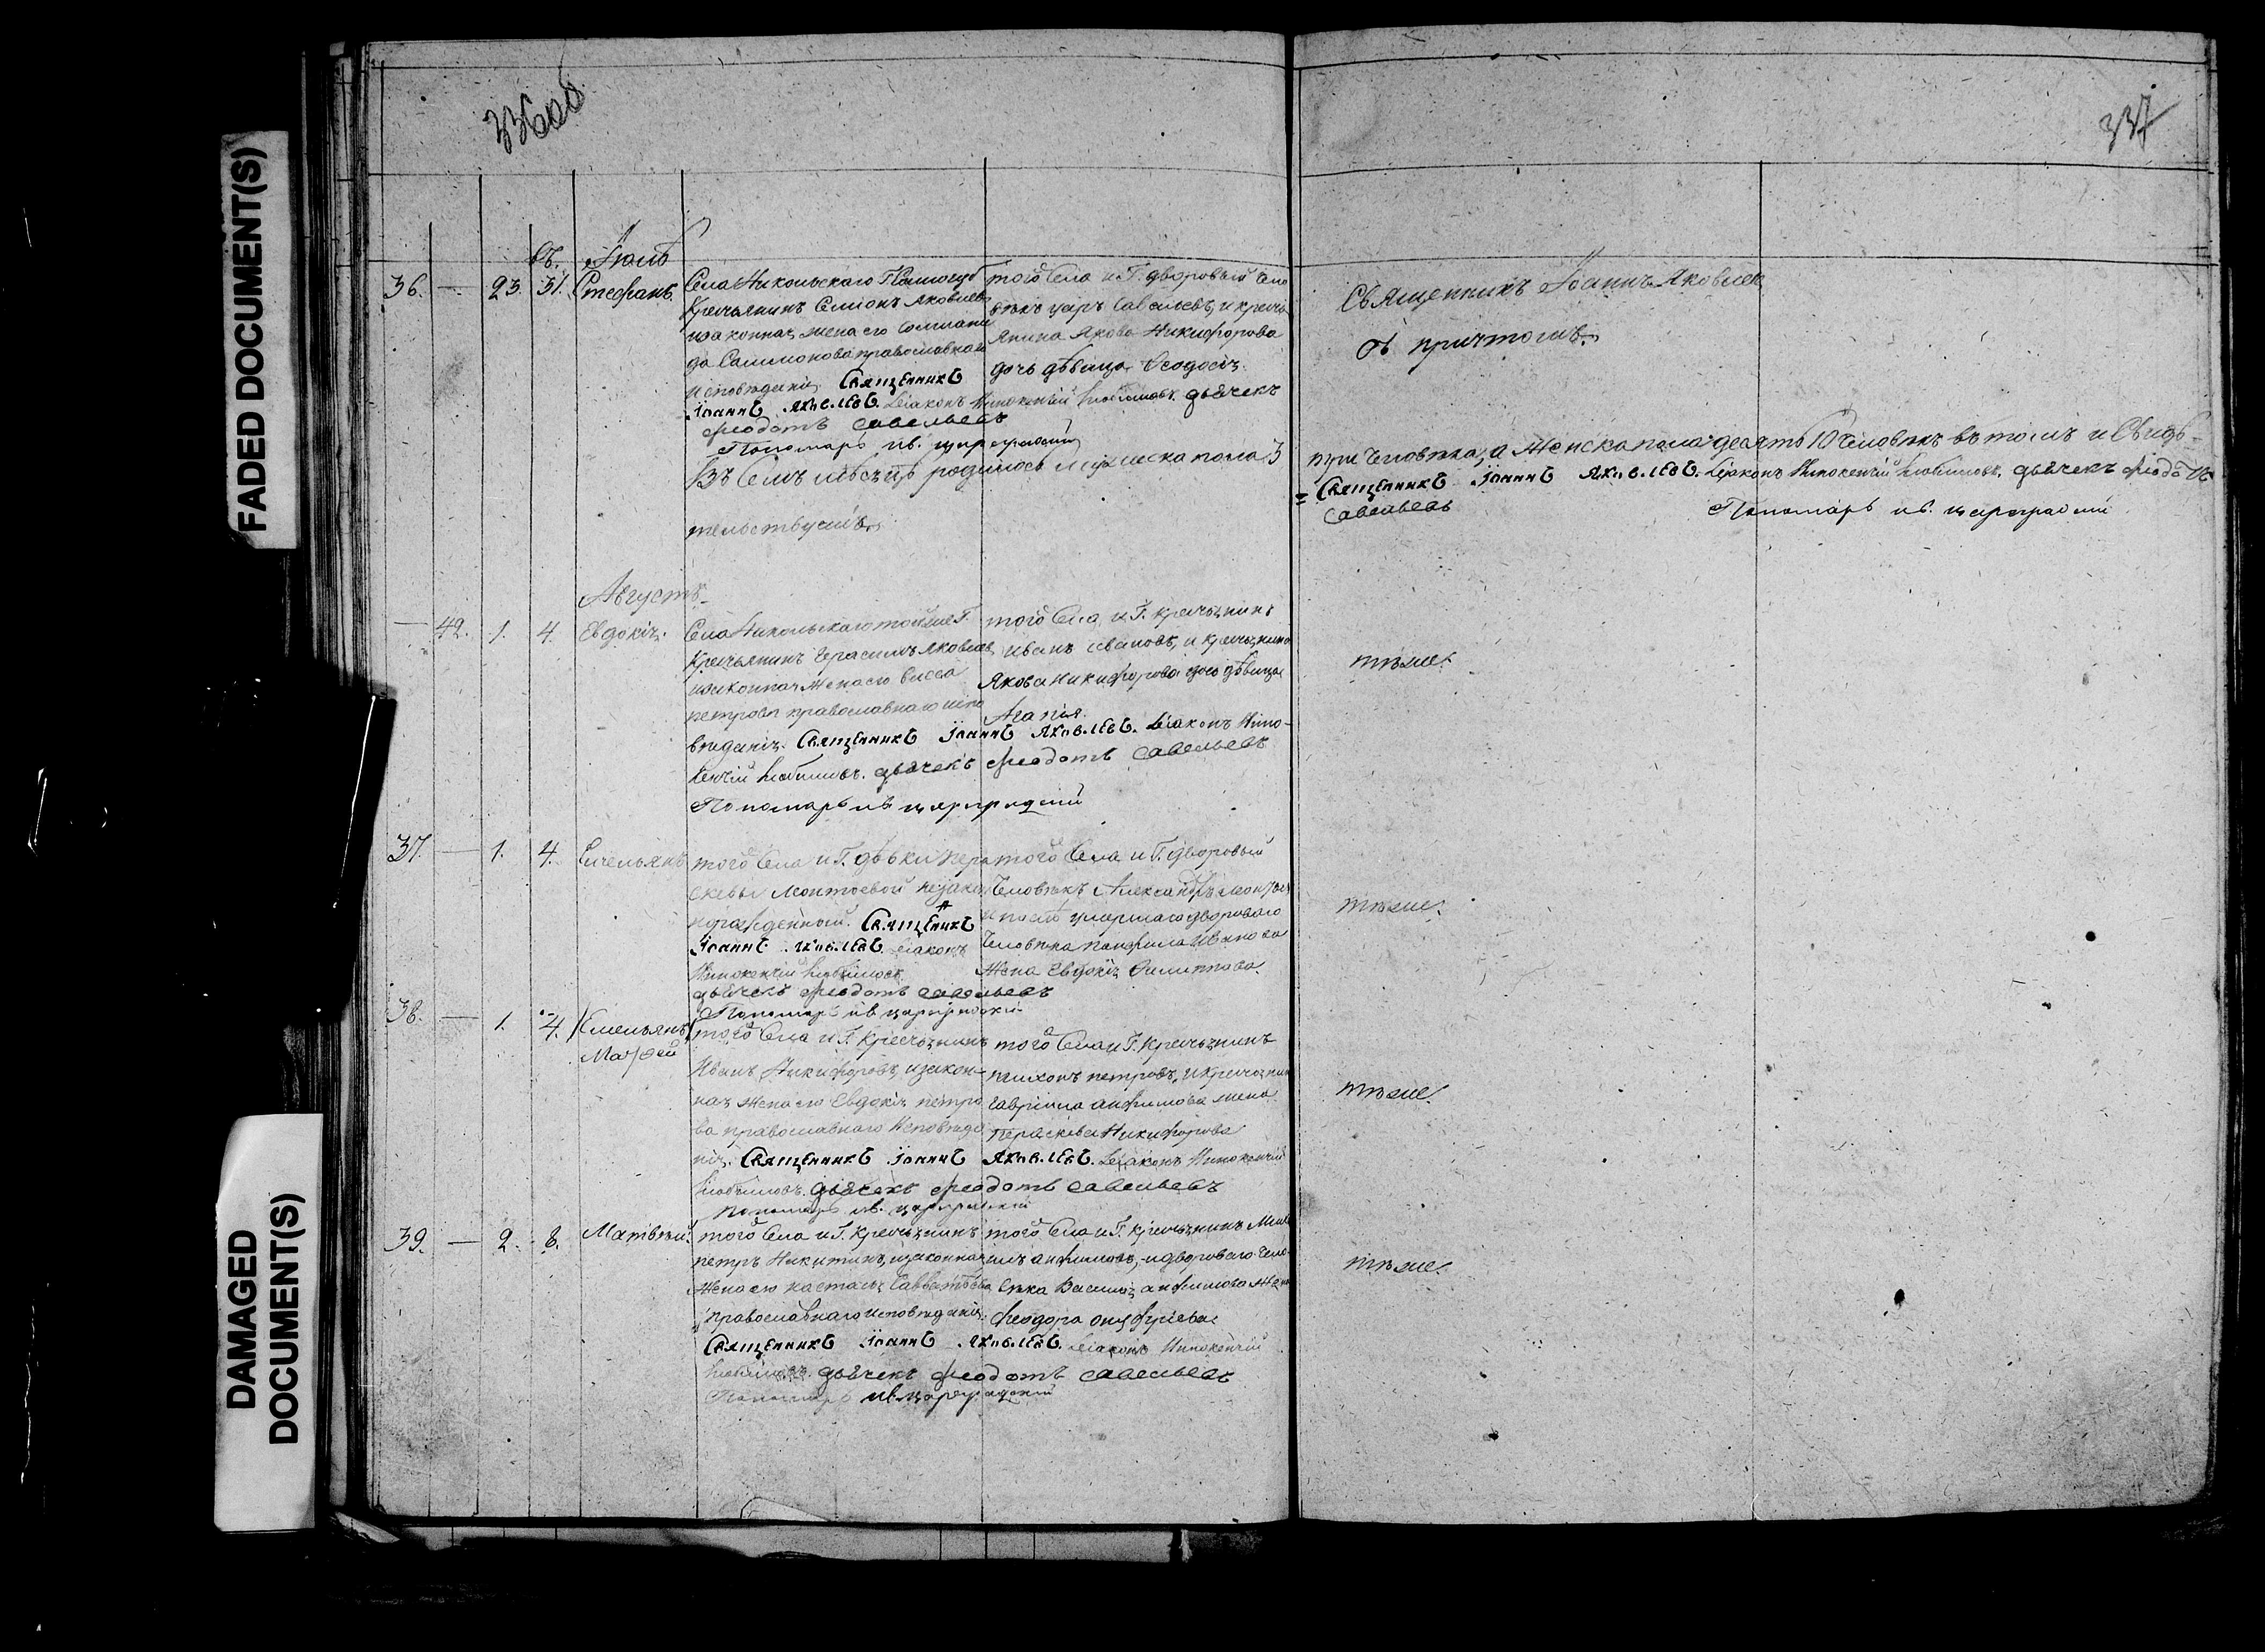 336об
337
FADED DOCUMENT(S)
DAMAGED
DOCUMENT(S)
Іюль
36. — 23. 31. Стефанъ.
Села Никольскаго
Крестьянинъ Семіонъ Яковлевъ
изаконная жена его
православнаго
исповѣданія. Священникъ
Іоаннъ Яковлевъ. Діаконъ Инокентій Любимовъ. дьячекъ
Феодотъ Савельевъ
Пономарь Ив. Цареградскій
того Села и Г. дворовый чело
вѣкъ Савельевъ, и крестья
янина Якова Никифорова
дочь дѣвица Феодосія.
Священникъ Іоаннъ Яковлев
съ причтомъ.
Въ Семъ мѣсяцѣ родилось мужеска пола 3
три человѣка, а Женска пола десять 10 человѣкъ въ томъ и Свидѣ-
тельствуемъ
Священникъ Іоаннъ Яковлевъ. Діаконъ Инокентій Любимовъ. дьячекъ Феодотъ
Савельевъ
Пономарь Ив. Цареградскій
Августъ
— 42. 1. 4. Евдокія.
Села Никольскаго тойже Г.
Крестьянинъ Герасимъ Яковлевъ
изаконная Жена его Васса
петрова православнаго испо
вѣданія. Священникъ Іоаннъ Яковлевъ. Діаконъ Ино-
кентій Любимовъ. дьячекъ Феодотъ Савельевъ
Пономарь Ив Цареградскій
того Села и Г. крестьянинъ
иванъ ивановъ, и крестьянина
Якова Никифорова дочь дѣвица
Агапія
тѣже.
37. — 1. 4. Емельянъ
того Села и Г. дѣвки пера
скевы Леонтьевой незакон
норожденный. Священникъ
Іоаннъ Яковлевъ діаконъ
Инокентій Любимовъ
дьячекъ Феодотъ Савельевъ
Пономарь Ив Цареградскій
того Села и Г. дворовый
человѣкъ Александръ Леонтьев
и послѣ умершаго двороваго
человѣка панфила Иванова
Жена Евдокія Филиппова.
тѣже.
38. — 1. 4. (Емельянъ)
Матфей
того Села и Г. Крестьянинъ
Иванъ Никифоровъ, изакон-
ная Жена его Евдокія петро
ва православнаго Исповѣда
нія. Священникъ Іоаннъ Яковлевъ. Діаконъ Инокентій
Любимовъ. дьячекъ Феодотъ Савельевъ
Пономарь Ив. Цареградскій
того Села и Г. Крестьянинъ
тихонъ петровъ, и Крестьянин
Гавріила анфимова жена
Пераскева Никифорова
тѣже.
39. — 2. 8. Матвѣй.
того Села и Г. Крестьянинъ
петръ Никитинъ, изаконная
Жена его настасья Савватѣева
православнаго исповѣданія.
Священникъ Іоаннъ Яковлевъ. Діаконъ Инокентій
Любимовъ. дьячекъ Феодотъ Савельевъ
Пономарь Ив Цареградскій
того Села и Г. крестьянинъ
анфимовъ, и двороваго чело-
вѣка Василія анфимова Жена
Феодора онуфріева
тѣже.